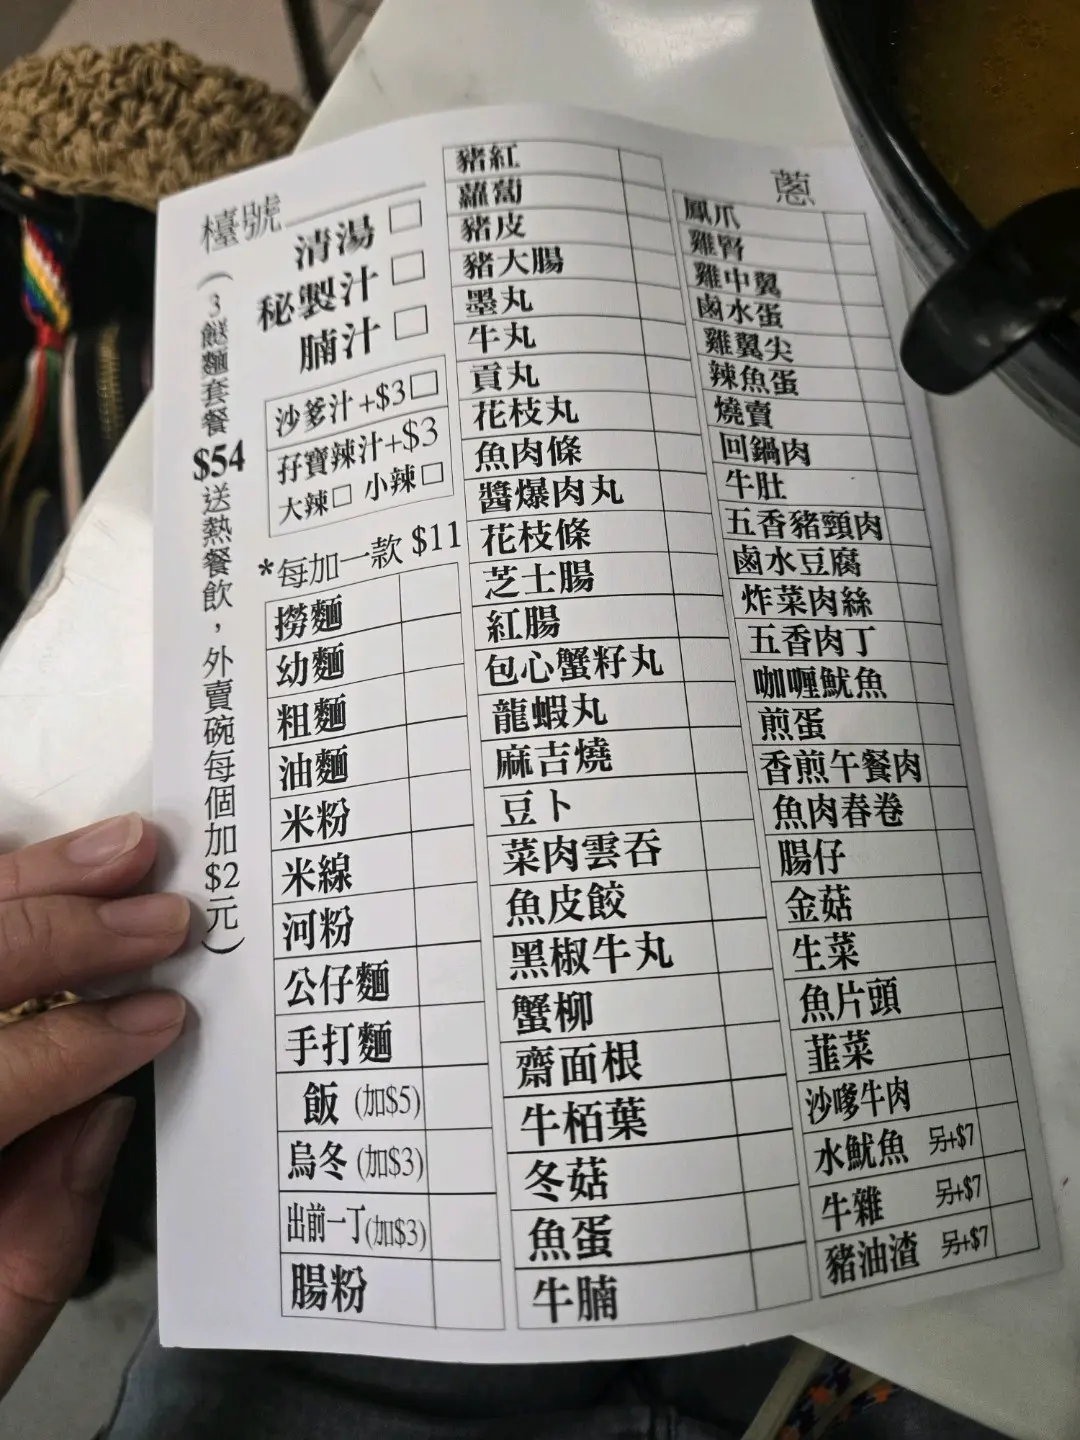 檯號
清湯 □
秘製汁 □
腩汁 □
沙爹汁+$3□
孖寶辣汁+$3
大辣□ 小辣□
(3餸麵套餐$54送熱餐飲，外賣碗每個加$2元)
*每加一款 $11
撈麵
幼麵
粗麵
油麵
米粉
米線
河粉
公仔麵
手打麵
飯 (加$5)
烏冬 (加$3)
出前一丁(加$3)
腸粉
豬紅
蘿蔔
豬皮
豬大腸
墨丸
牛丸
貢丸
花枝丸
魚肉條
醬爆肉丸
花枝條
芝士腸
紅腸
包心蟹籽丸
龍蝦丸
麻吉燒
豆卜
菜肉雲吞
魚皮餃
黑椒牛丸
蟹柳
齋面根
牛栢葉
冬菇
魚蛋
牛腩
蔥
鳳爪
雞腎
雞中翼
鹵水蛋
雞翼尖
辣魚蛋
燒賣
回鍋肉
牛肚
五香豬頸肉
鹵水豆腐
炸菜肉絲
五香肉丁
咖喱魷魚
煎蛋
香煎午餐肉
魚肉春卷
腸仔
金菇
生菜
魚片頭
韮菜
沙嗲牛肉
水魷魚 另+$7
牛雜 另+$7
豬油渣 另+$7